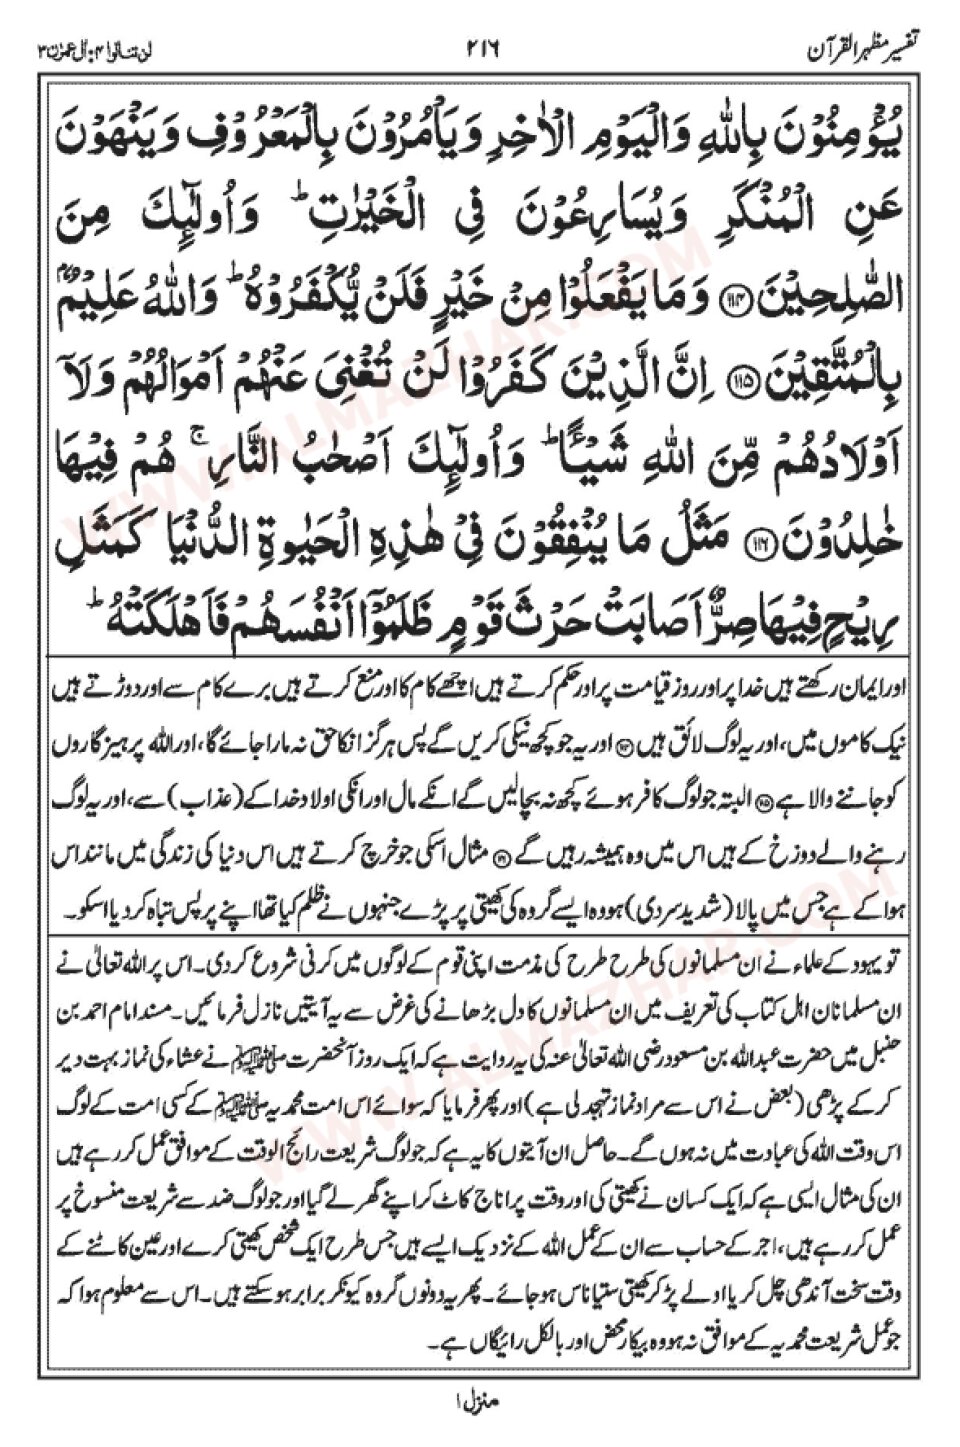 تفسیر مظہر القرآن ۲۱۶ لن تنالوا ۴: آل عمرٰن ۳
یُؤْمِنُوْنَ بِاللّٰهِ وَالْیَوْمِ الْاٰخِرِ وَیَاْمُرُوْنَ بِالْمَعْرُوْفِ وَیَنْهَوْنَ
عَنِ الْمُنْكَرِ وَیُسَارِعُوْنَ فِی الْخَیْرٰتِ ؕ وَاُولٰٓئِكَ مِنَ
الصّٰلِحِیْنَ ﴿۱۱۴﴾ وَمَا یَفْعَلُوْا مِنْ خَیْرٍ فَلَنْ یُّكْفَرُوْهُ ؕ وَاللّٰهُ عَلِیْمٌۢ
بِالْمُتَّقِیْنَ ﴿۱۱۵﴾ اِنَّ الَّذِیْنَ كَفَرُوْا لَنْ تُغْنِیَ عَنْهُمْ اَمْوَالُهُمْ وَلَاۤ
اَوْلَادُهُمْ مِّنَ اللّٰهِ شَیْـًٔا ؕ وَاُولٰٓئِكَ اَصْحٰبُ النَّارِ ۚ هُمْ فِیْهَا
خٰلِدُوْنَ ﴿۱۱۶﴾ مَثَلُ مَا یُنْفِقُوْنَ فِیْ هٰذِهِ الْحَیٰوةِ الدُّنْیَا كَمَثَلِ
رِیْحٍ فِیْهَا صِرٌّ اَصَابَتْ حَرْثَ قَوْمٍ ظَلَمُوْۤا اَنْفُسَهُمْ فَاَهْلَكَتْهُ ؕ
اور ایمان رکھتے ہیں خدا پر اور روز قیامت پر اور حکم کرتے ہیں اچھے کام کا اور منع کرتے ہیں برے کام سے اور دوڑتے ہیں
نیک کاموں میں، اور یہ لوگ لائق ہیں ﴿۱۱۴﴾ اور یہ جو کچھ نیکی کریں گے پس ہرگز انکا حق نہ مارا جائے گا، اور اللہ پرہیزگاروں
کو جاننے والا ہے ﴿۱۱۵﴾ البتہ جو لوگ کافر ہوئے کچھ نہ بچالیں گے انکے مال اور انکی اولاد خدا کے (عذاب) سے، اور یہ لوگ
رہنے والے دوزخ کے ہیں اس میں وہ ہمیشہ رہیں گے ﴿۱۱۶﴾ مثال اسکی جو خرچ کرتے ہیں اس دنیا کی زندگی میں مانند اس
ہوا کے ہے جس میں پالا (شدید سردی) ہو وہ ایسے گروہ کی کھیتی پر پڑے جنہوں نے ظلم کیا تھا اپنے پر پس تباہ کر دیا اسکو۔
تو یہود کے علماء نے ان مسلمانوں کی طرح طرح کی مذمت اپنی قوم کے لوگوں میں کرنی شروع کردی۔ اس پر اللہ تعالیٰ نے
ان مسلمانان اہل کتاب کی تعریف میں ان مسلمانوں کا دل بڑھانے کی غرض سے یہ آیتیں نازل فرمائیں۔ مسند امام احمد بن
حنبل میں حضرت عبداللہ بن مسعود رضی اللہ تعالیٰ عنہ کی یہ روایت ہے کہ ایک روز آنحضرت ﷺ نے عشاء کی نماز بہت دیر
کر کے پڑھی (بعض نے اس سے مراد نماز تہجد لی ہے) اور پھر فرمایا کہ سوائے اس امت محمدیہ ﷺ کے کسی امت کے لوگ
اس وقت اللہ کی عبادت میں نہ ہوں گے۔ حاصل ان آیتوں کا یہ ہے کہ جو لوگ شریعت رائج الوقت کے موافق عمل کر رہے ہیں
ان کی مثال ایسی ہے کہ ایک کسان نے کھیتی کی اور وقت پر اناج کاٹ کر اپنے گھر لے گیا اور جو لوگ ضد سے شریعت منسوخ پر
عمل کر رہے ہیں، اجر کے حساب سے ان کے عمل اللہ کے نزدیک ایسے ہیں جس طرح ایک شخص کھیتی کرے اور عین کاٹنے کے
وقت سخت آندھی چل کر یا اولے پڑ کر کھیتی ستیاناس ہوجائے۔ پھر یہ دونوں گروہ کیونکر برابر ہوسکتے ہیں۔ اس سے معلوم ہوا کہ
جو عمل شریعت محمدیہ کے موافق نہ ہو وہ بیکار محض اور بالکل رائیگاں ہے۔
منزل ۱
WWW.ALMAZHAR.COM
WWW.ALMAZHAR.COM